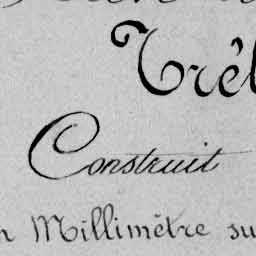 Trêl
Construit
n Millimètre su